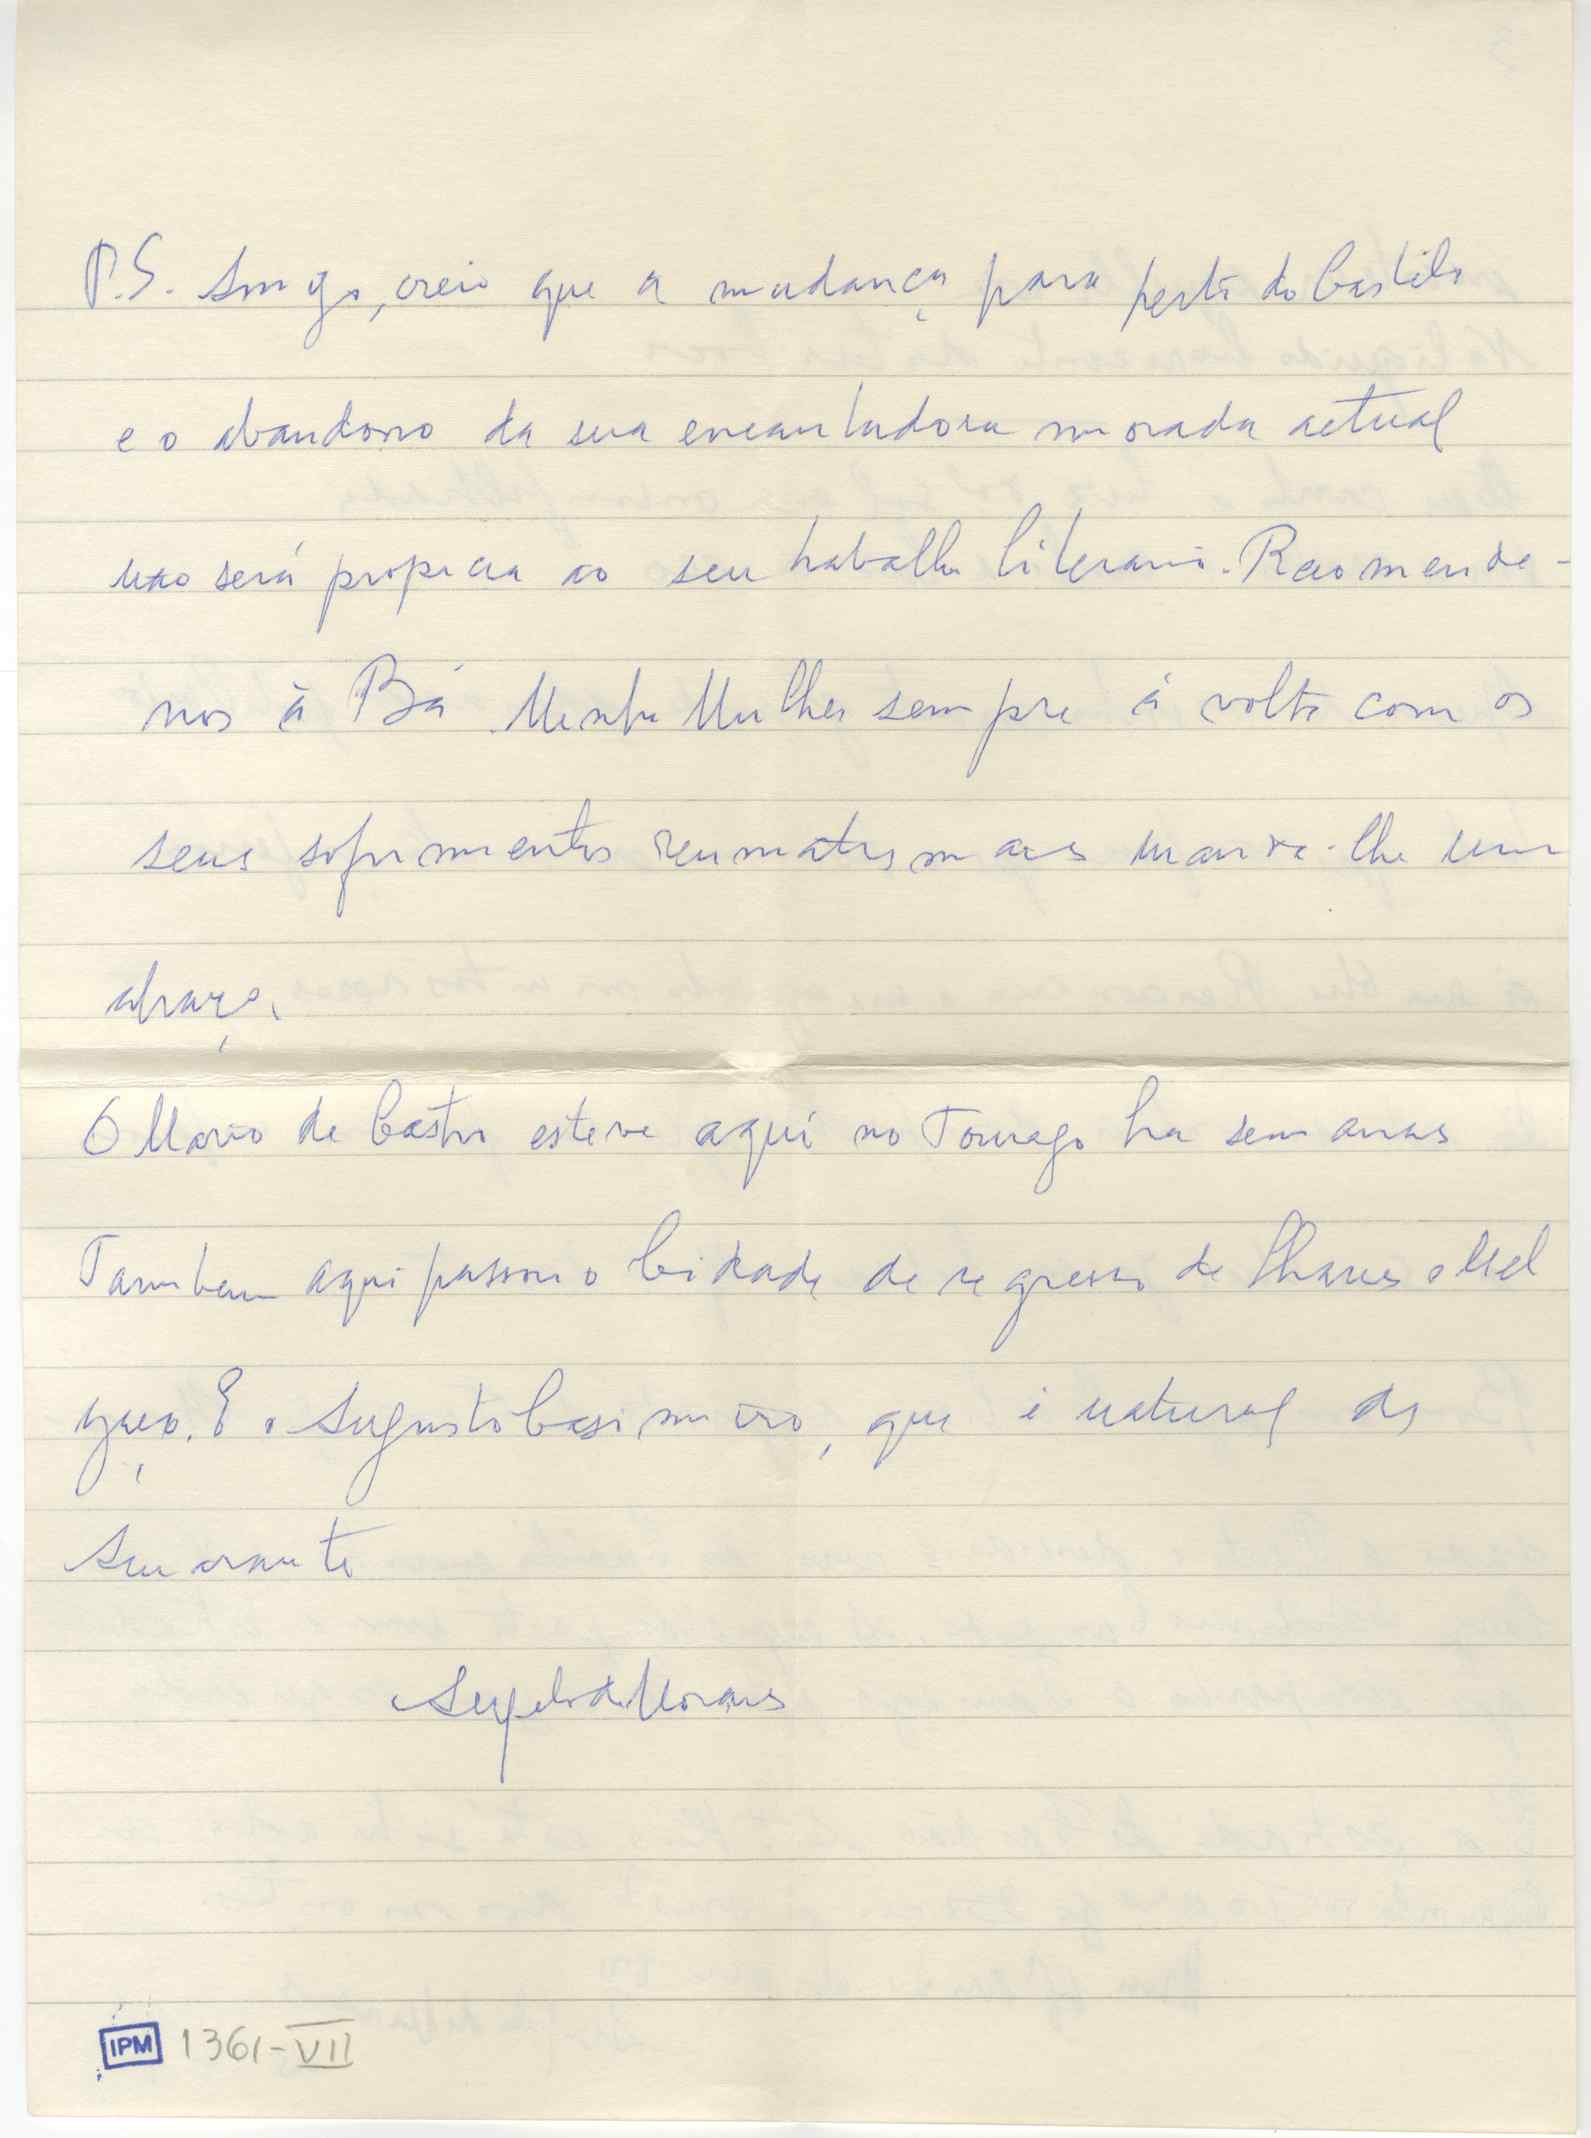 P.S. Amigo, creio que a mudança para perto do Castelo
e o abandono da sua encantadora morada actual
não será propicia ao seu trabalho literario. Recomende-
nos à Bá. Minha Mulher sempre á volta com os
seus sofrimentos reumatismais manda-lhe um
abraço.
O Mario de Castro esteve aqui no Tourago ha semanas
Tambem aqui passou o Cidade de regresso de Chaves e Mel
gaço. E o Augusto Casimiro, que é natural de
Amarante
de Morais
IPM 1361-VII